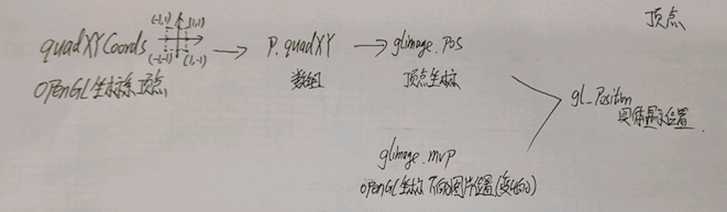 顶点
(-1,1) (1,1)
quadXYCoords → P.quadXY → glimage.Pos
(-1,-1) (1,-1)
OPenGL坐标系顶点 数组 顶点坐标
gl_Position
具体显示位置
glimage.mvp
OPenGL坐标下的图片位置(变化的)